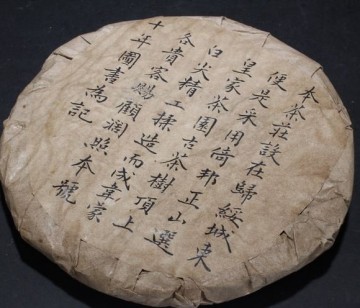 本茶莊設在歸綏城東
便光采用倚邦正山選
皇家茶園古茶樹頂上
白火精工揉造而成韋蒙
各貴客賜顧溯照本號
十年圖書為記